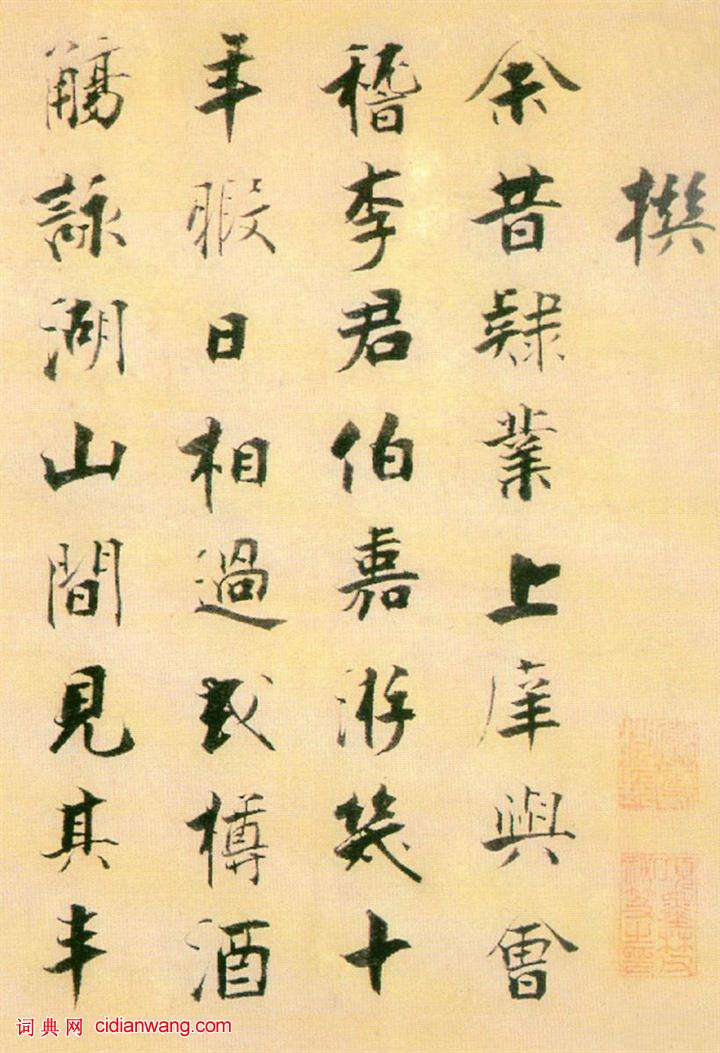 撰
余昔隸業上庠與會
稽李君伯嘉游幾十
年暇日相過或樽酒
觴詠湖山間見其丰
词典网 cidianwang.com